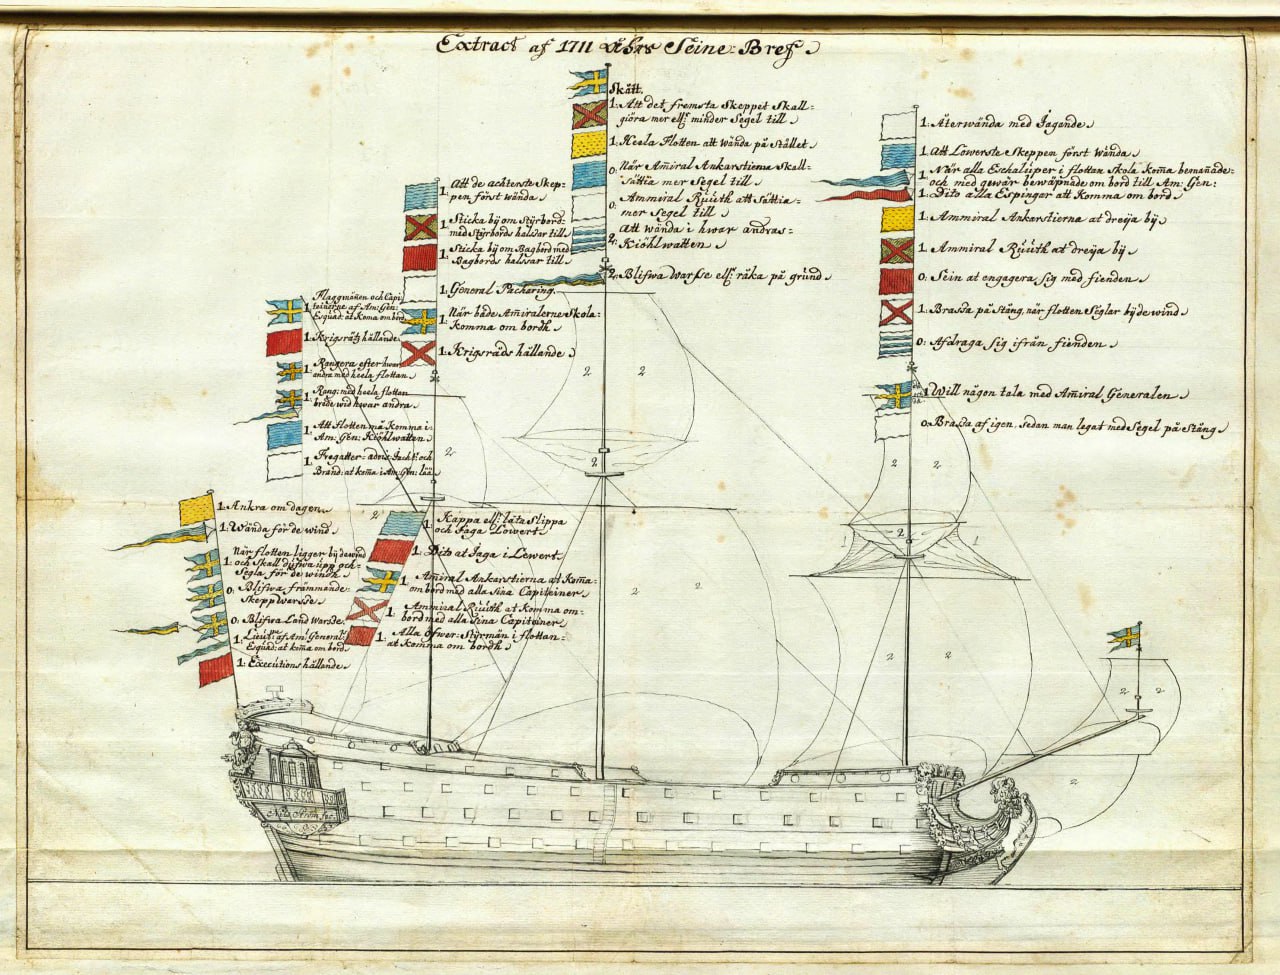 Extract af 1711 åhrs Seine-Bref
Skått.
1. Att det fremsta Skeppet Skall-
giöra mer ellr minder Segel till
1. Heela Flotten att wända på Stället
0. När Amiral Ankarstierna Skall-
Sättia mer Segel till
0. Ammiral Rúúth att Sättia-
mer Segel till
Att wända i hwar andras-
2. Kiöhlwatten
2. Blifwa warse ellr råka på grund
1. Återwända med Jagande
1. Att Löwerste Skeppen först wända
1. När alla Eschalúper i flottan Skola koma bemanade-
och med gewär bewäpnade om bord till Am: Gen:
1. Dito alla Espingar att Komma om bord
1. Ammiral Ankarstierna at dreija bij
1. Ammiral Rúúth at dreija bij
0. Sein at engagera sig med fienden
1. Brassa på Stäng, när flotten Seglar bij de wind
0. Afdraga Sig ifrån fienden
1. Will någon tala med Amiral Generalen
0. Brassa af igen, sedan man legat med Segel på Stäng
Att de achterste Skep-
pen först wända
1. Sticka bij om Styrbord-
med Styrbords halssar till
1. Sticka bij om Bagbord med
Bagbords halssar till
1. General Pacharing
1. När både Amiralerne Skola-
Komma om bordh
1. Krigsråds hållande
Flaggmänen och Capi
1. teinerne af Am: Gen:
Esquad: at Koma om bord
1. Krigsrätz hållande
1. Rangera efter hwar
andra med heela flottan
1. Rang: med heela flottan
brede wid hwar andra
1. Att flotten må Komma i-
Am: Gen: Kiöhlwatten
1. Fregatter- advis Jacht: och
Brand: at koma i Am: Gen: lää
1. Ankra om dagen
1. Wända för de wind
När flotten ligger bij de wind
1. och Skall dúfwa úpp och-
Segla för de windh
0. Blifwa främmande-
Skepp warsse
0. Blifwa Land warse
1. Lieutn: af Am: General:
Esquad: at koma om bord
1. Executions hållande
1. Kappa ellr låta Slippa
och Jaga Löwert
1. Dito at Jaga i Lewert
1. Amiral Ankarstierna at Koma-
om bord med alla sina Capiteiner
1. Ammiral Rúúth at Komma om-
bord med alla Sina Capiteiner
1. Alla Öfwer-Styrmän i flottan-
at Komma om bordh
2 2
2
2
2
2 2
2
1 1
2 2
2 2
2 2
2